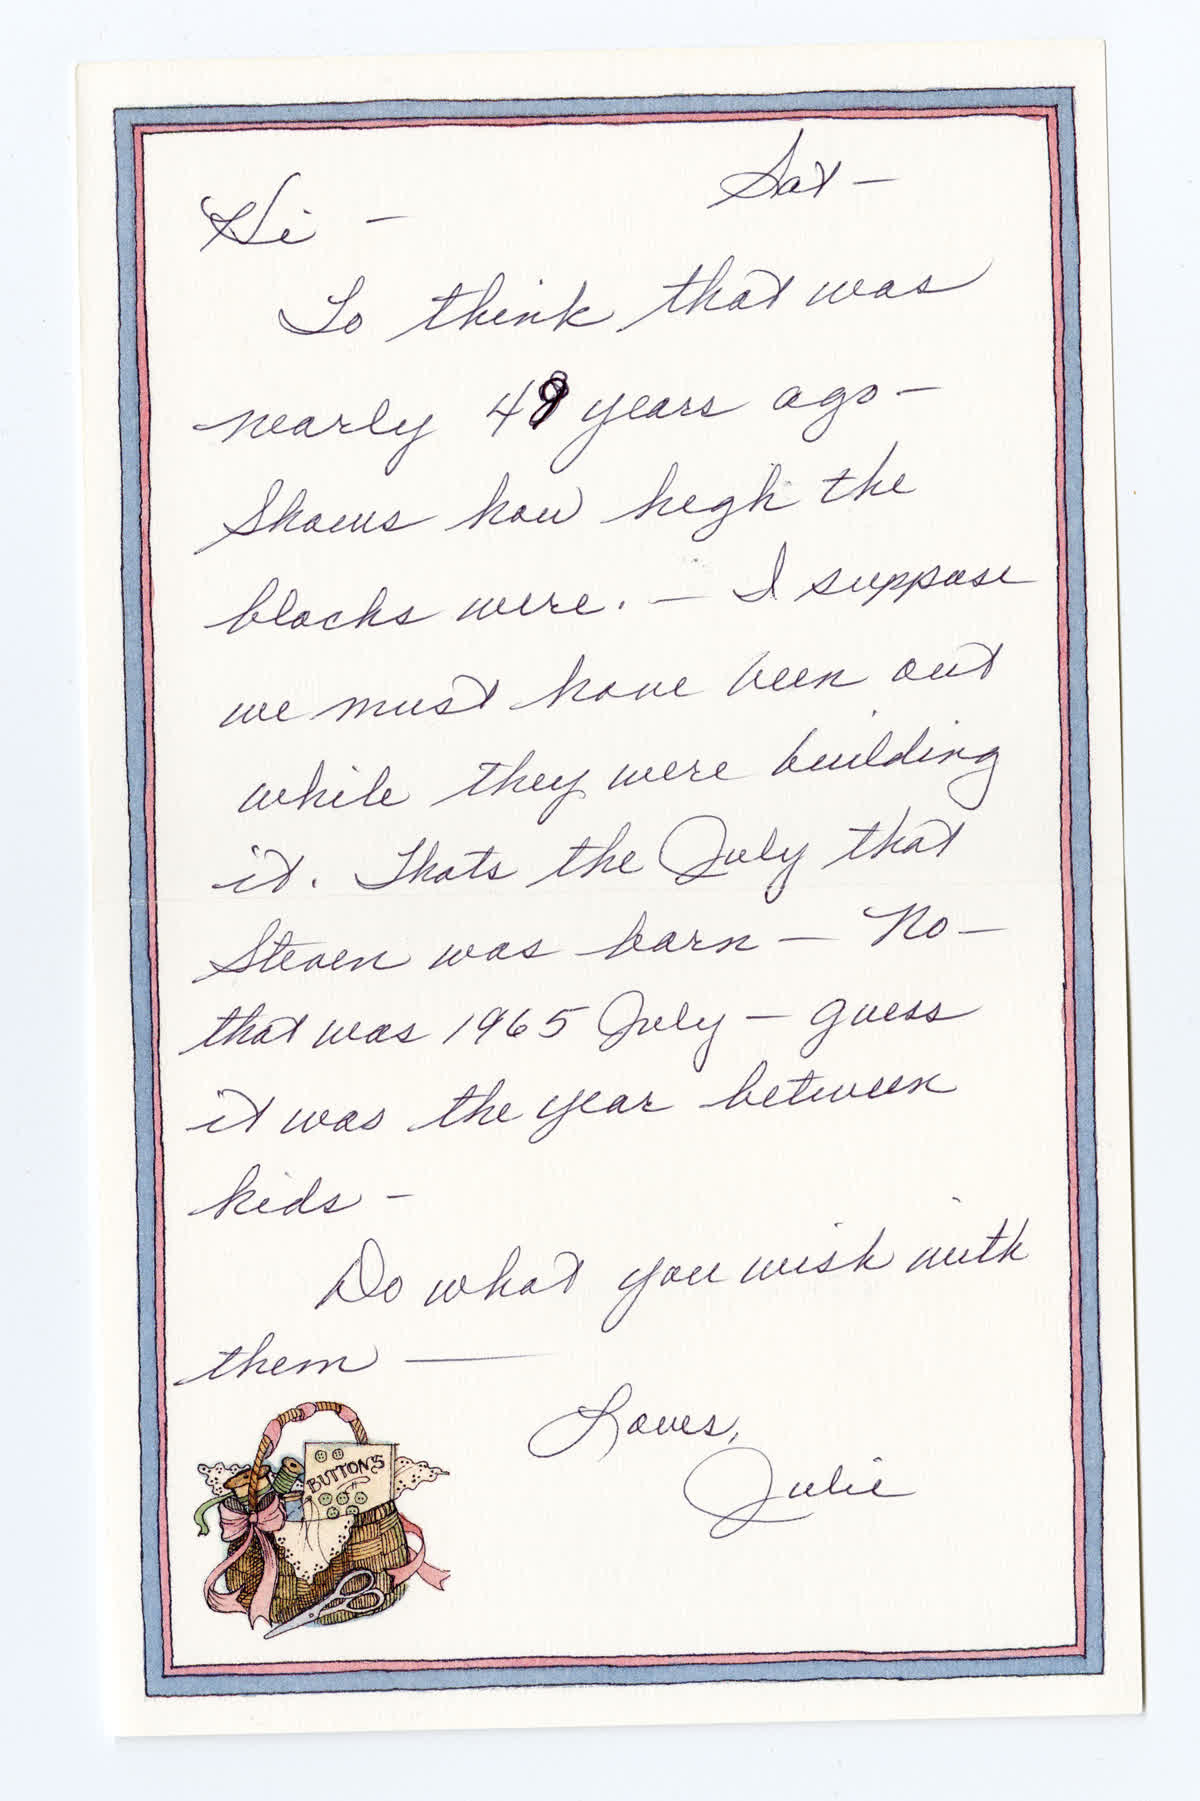 Sat —
Hi —
To think that was
nearly 49 years ago —
Shows how high the
blocks were. — I suppose
we must have been out
while they were building
it. Thats the July that
Steven was born — No —
that was 1965 July — guess
it was the year between
kids —
Do what you wish with
them —
Loves,
Julie
BUTTONS